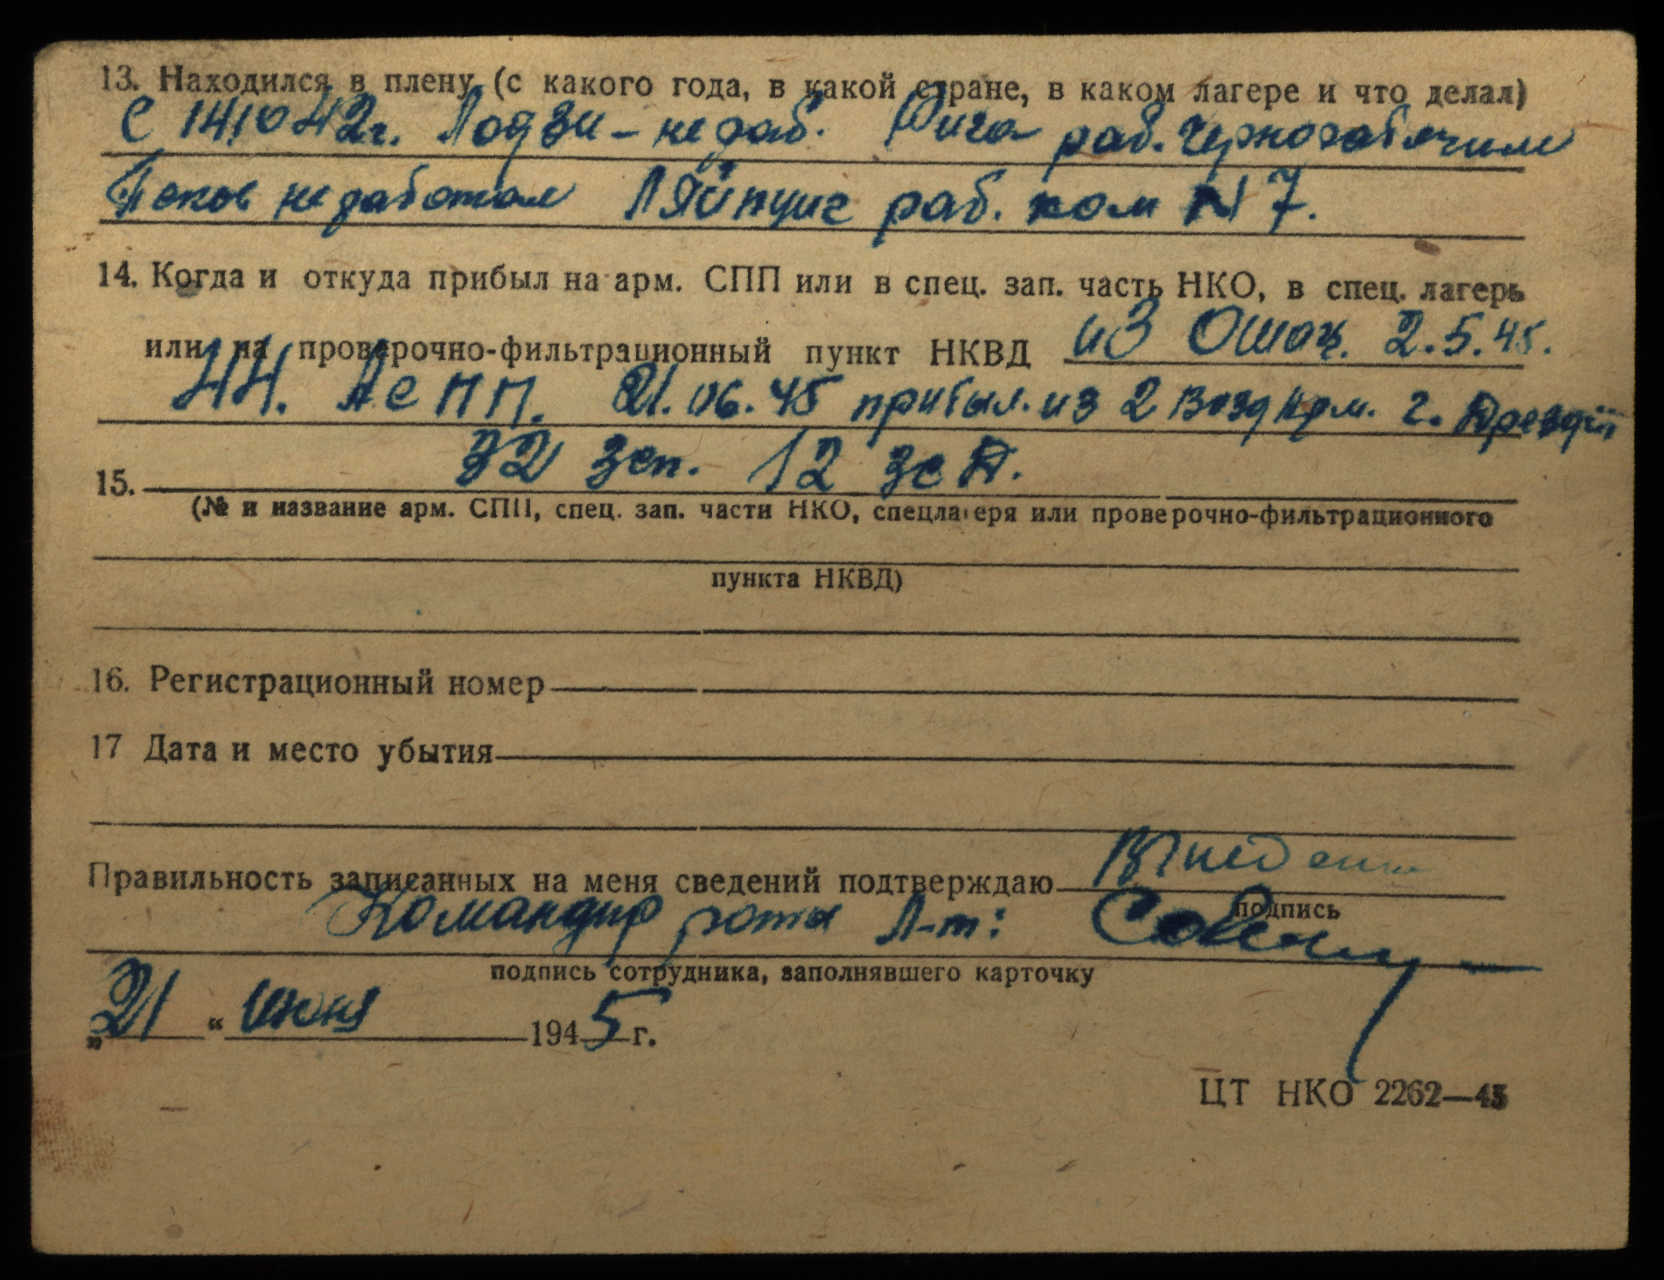 13. Находился в плену (с какого года, в какой стране, в каком лагере и что делал)
С 141042г. Лодзи - не раб. Рига раб. Чернорабочим
Псков не работал Ляйпциг раб. ком N 7.
14. Когда и откуда прибыл на арм. СПП или в спец. зап. часть НКО, в спец. лагерь
или на проверочно-фильтрационный пункт НКВД из Ошац. 2.5.45.
44. АСПП. 21.06.45 прибыл. из 2 Возд Арм. г. Дрезден
32 зсп. 12 зсд.
15.
(№ и название арм. СПП, спец. зап. части НКО, спецлагеря или проверочно-фильтрационного
пункта НКВД)
16. Регистрационный номер
17 Дата и место убытия
Правильность записанных на меня сведений подтверждаю
подпись
Командир роты Л-т:
подпись сотрудника, заполнявшего карточку
„21“ июня 1945 г.
ЦТ НКО 2262—45